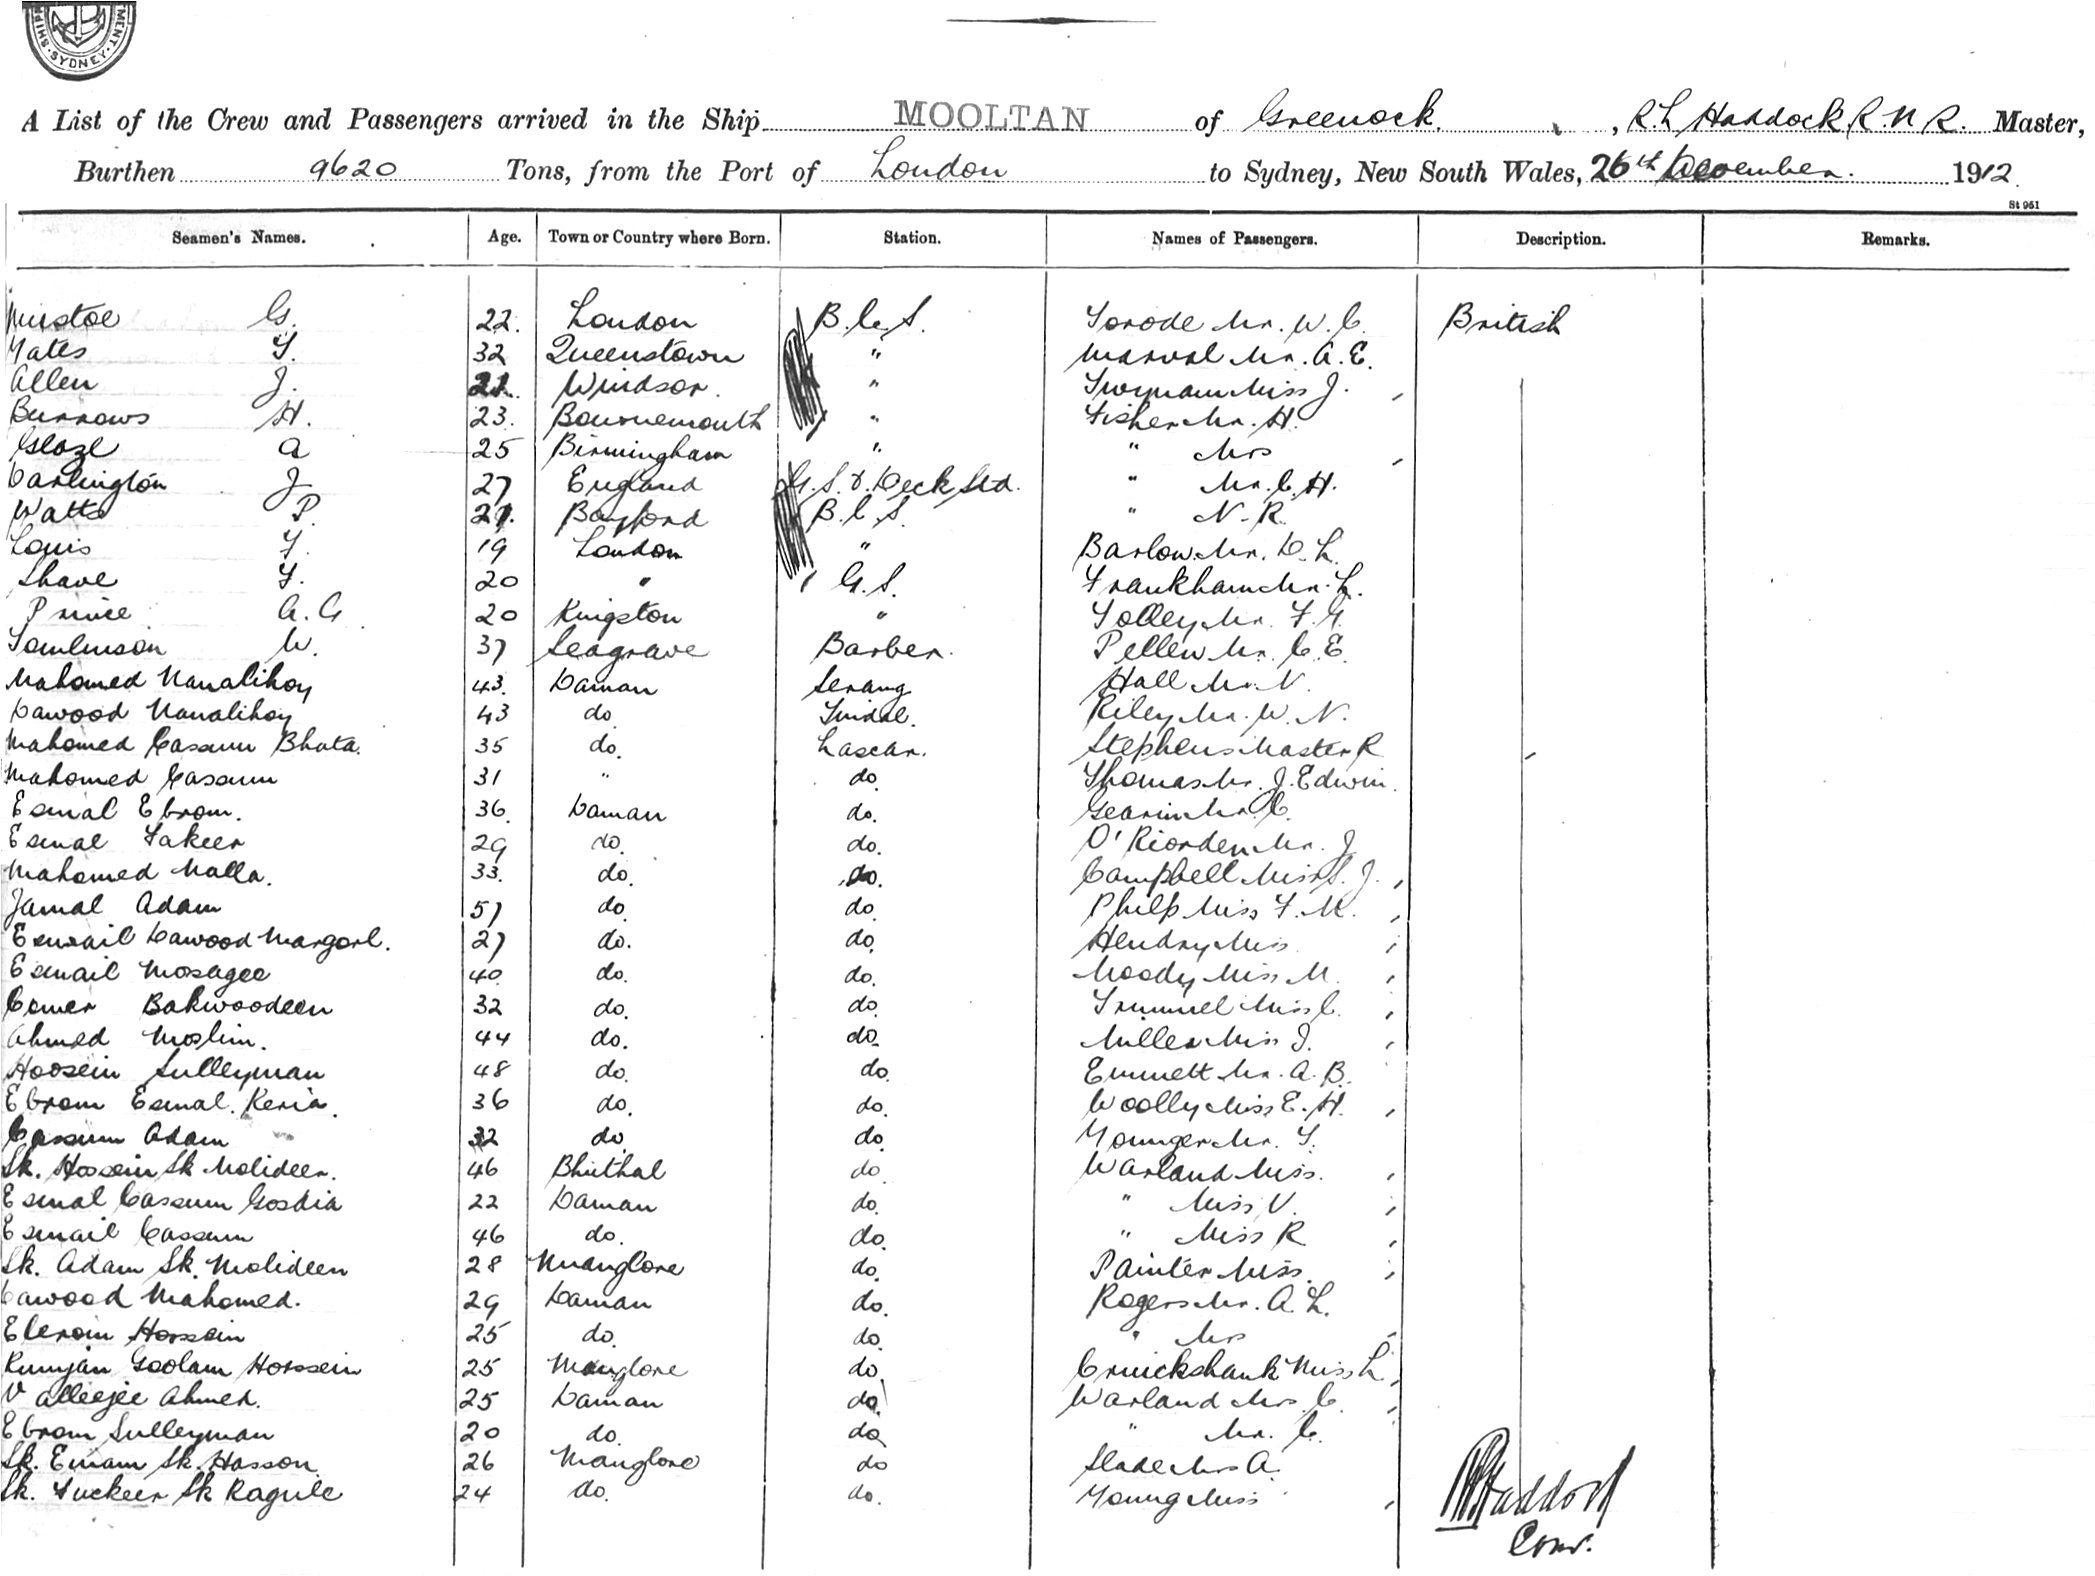 MENT. SHIP SYDNEY.
A List of the Crew and Passengers arrived in the Ship MOOLTAN of Greenock, R. L Haddock, R. N R. Master,
Burthen 9620 Tons, from the Port of London to Sydney, New South Wales, 26th December. 1912.
St 951
Seamen's Names. Age. Town or Country where Born. Station. Names of Passengers. Description. Remarks.
G. 22. London B. C. S. Torode Mr. W. C. British
Yates F. 32 Queenstown " Mr. A. E.
Allen J. 21. Windsor. " Twynam Miss J.
Burrows H. 23. Bournemouth " Fisher Mr. H.
Gloze A 25 Birmingham " " Mrs
Carlington J 27 England G. S. & Deck Std. " Mr. C. H.
Watts P. 21. Bayford B. C S. " N. R.
Louis F. 19 London " Barlow Mr. D. L.
Shave F. 20 " G. S. Frankham Mr. L.
Prince A. G 20 Kingston " Tolley Mr. F. G.
Tomlinson W. 37 Seagrave Barber. Pellew Mr. C. E.
Mahomed Nanalihoy 43. Daman Serang Hall Mr. N.
Dawood Nanalihoy 43 do Tindal. Riley Mr. W. N.
Mahomed Cassum Bhata. 35 do. Lascar. Stephens Master R
Mahomed Cassum 31 " do Thomas Mr. J. Edwin.
Esmal Ebrom. 36. Daman do. Gearin Mr. C.
Esmal Fakeer 29 do. do. O'Riorden Mr. J
Mahomed Malla. 33. do. do. Campbell Miss S. J.
Jamal Adam 57 do do Philp Miss F. M.
Esmail Dawood Margorl. 27 do. do. Hendry Miss
Esmail Mosagee 40 do. do. Moody Miss M.
Comer Bakwoodeen 32 do. do. Trimmel Miss C.
Ahmed Moslim. 44 do. do. Miller Miss J.
Hoosein Sulleyman 48 do. do. Emmett Mr. A. B.
Ebrom Esmal. Keria. 36 do. do. Woolly Miss E. H.
Cassum Adam 32 do do Younger Mr. F.
Sk. Hossein Sk Molideen. 46 Bhuthal do Warland Miss.
Esmal Cassum Gosdia 22 Daman do. " Miss V.
Esmail Cassum 46 do. do. " Miss R
Sk. Adam Sk. Molideen 28 Manglore do. Painter Miss.
Dawood Mahomed. 29 Daman do. Rogers Mr. A. L.
Ebrom Hossein 25 do. do. " Mrs
Rumjan Goolam Hossein 25 Manglore do Cruickshank Miss L
Valleejee Ahmed. 25 Daman do Warland Mrs. C.
Ebrom Sulleyman 20 do. do " Mr. C.
Sk. Emam Sk. Hasson 26 Manglore do Slade Mrs A.
Sk. Fuckeer Sk Ragule 24 do. do. Young Miss
Haddock
Com.